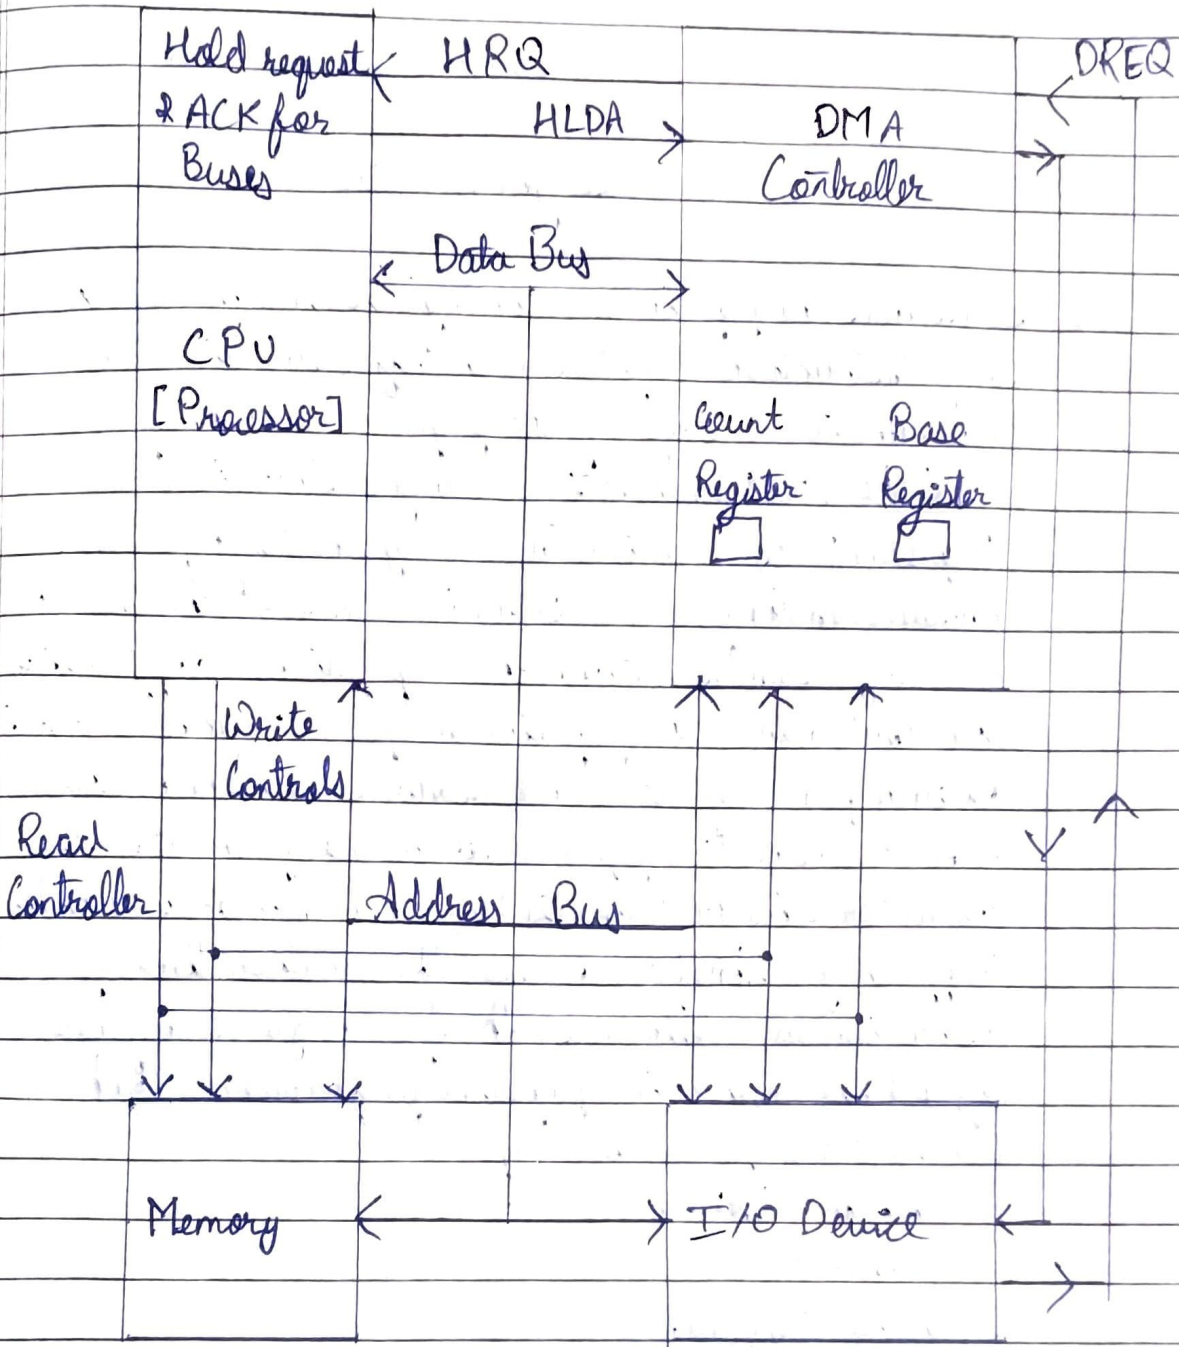 Hold request
& ACK for
Buses
HRQ
HLDA
DMA
Controller
DREQ
Data Bus
CPU
[Processor]
Count
Register
Base
Register
Write
Controls
Read
Controller
Address Bus
Memory
I/O Device